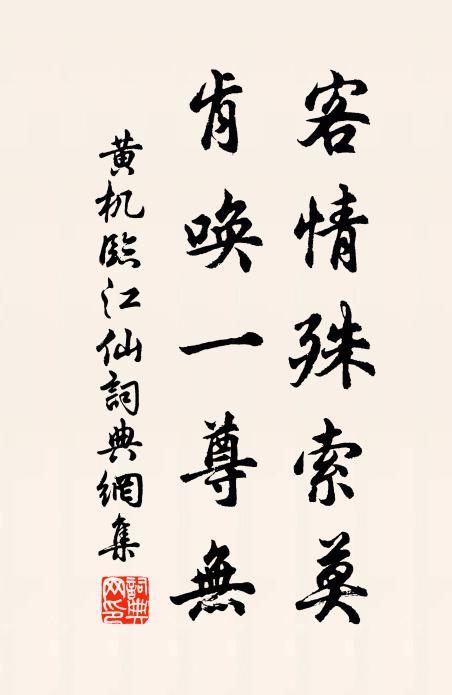 客情殊索莫
肯唤一尊無
黄机臨江仙詞典網集
詞典網印